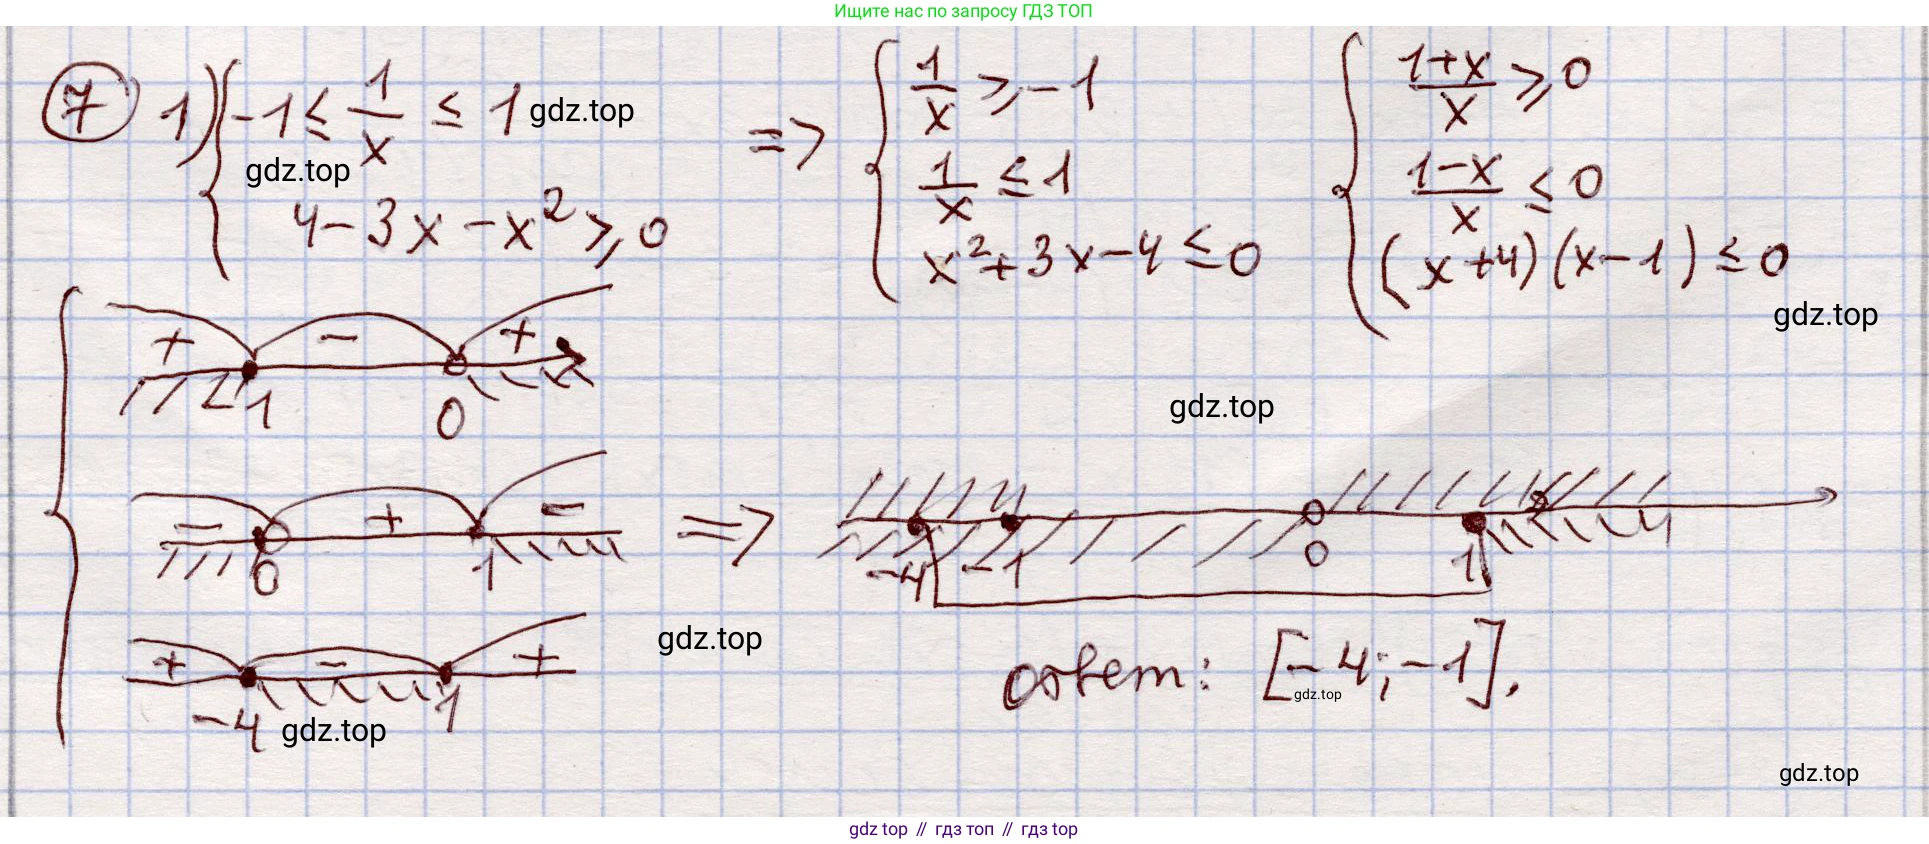 Ищите нас по запросу ГДЗ ТОП
7 1) { -1 ≤ 1/x ≤ 1 gdz.top
gdz.top
4 - 3x - x² ≥ 0
=> { 1/x ≥ -1
1/x ≤ 1
x² + 3x - 4 ≤ 0
{ (1+x)/x ≥ 0
(1-x)/x ≤ 0
(x+4)(x-1) ≤ 0
gdz.top
{ + - +
1 0
gdz.top
- + -
0 1
=>
-4 -1 0 1
+ - +
-4 1
gdz.top
gdz.top
ответ: [-4; -1].
gdz.top
gdz.top
gdz.top // гдз топ // гдз top